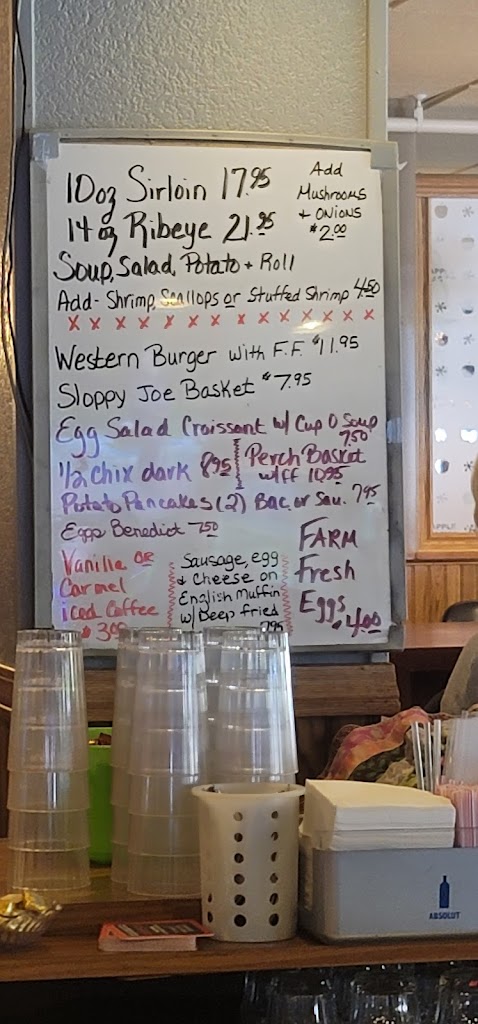 10oz Sirloin 17.95
14oz Ribeye 21.95
Add
Mushrooms
+ ONIONS
$2.00
Soup, Salad, Potato + Roll
Add - Shrimp, Scallops or Stuffed Shrimp 4.50
x x x x x x x x x x x x x
Western Burger with F.F. $11.95
Sloppy Joe Basket $7.95
Egg Salad Croissant w/ Cup O Soup
7.50
1/2 chix dark 8.95
Perch Basket
w/ff 10.95
Potato Pancakes (2) Bac. or Sau. 7.95
Eggs Benedict 7.50
Vanilla or
Carmel
iced Coffee
$3.00
Sausage, egg
& Cheese on
English Muffin
w/ Deep fried
7.95
FARM
Fresh
Eggs
$4.00
ABSOLUT